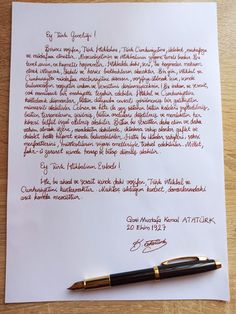 Ey Türk Gençliği!
Birinci vazifen, Türk istiklâlini, Türk Cumhuriyetini ilelebet, muhafaza
ve müdafaa etmektir. Mevcudiyetinin ve istikbalinin yegâne temeli budur. Bu
temel, senin en kıymetli hazinendir. İstikbalde dahi, seni, bu hazineden mahrum
etmek isteyecek, dahilî ve haricî bedhahların olacaktır. Bir gün, istiklâl ve
Cumhuriyeti müdafaa mecburiyetine düşersen, vazifeye atılmak için, içinde
bulunacağın vaziyetin imkân ve şeraitini düşünmeyeceksin! Bu imkân ve şerait,
çok nâmüsait bir mahiyette tezahür edebilir. İstiklâl ve Cumhuriyetine
kastedecek düşmanlar, bütün dünyada emsali görülmemiş bir galibiyetin
mümessili olabilirler. Cebren ve hile ile aziz vatanın bütün kaleleri zaptedilmiş,
bütün tersanelerine girilmiş, bütün orduları dağıtılmış ve memleketin her
köşesi bilfiil işgal edilmiş olabilir. Bütün bu şeraitten daha elim ve daha
vahim olmak üzere, memleketin dahilinde, iktidara sahip olanlar gaflet ve
dalâlet ve hattâ hıyanet içinde bulunabilirler. Hattâ bu iktidar sahipleri, şahsî
menfaatlerini, müstevlilerin siyasi emelleriyle tevhit edebilirler. Millet,
fakr-ü zaruret içinde harap ve bitap düşmüş olabilir.
Ey Türk İstikbalinin Evlâdı!
İşte, bu ahval ve şerait içinde dahi vazifen, Türk istiklâl ve
Cumhuriyetini kurtarmaktır. Muhtaç olduğun kudret, damarlarındaki
asil kanda mevcuttur.
Gazi Mustafa Kemal ATATÜRK
20 Ekim 1927
K. Atatürk